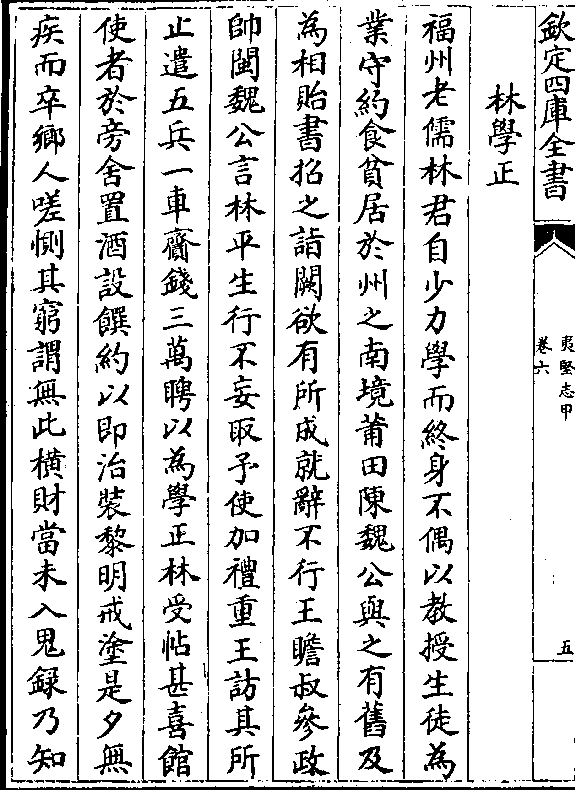 欽定四庫全書
夷堅志甲
卷六
五
林學正
福州老儒林君自少力學而終身不偶以教授生徒為
業守約食貧居於州之南境莆田陳魏公與之有舊及
為相貽書招之詣闕欲有所成就辭不行王瞻叔參政
帥閩魏公言林平生行不妄取予使加禮重王訪其所
止遣五兵一車齎錢三萬聘以為學正林受帖甚喜館
使者於旁舍置酒設饌約以即治裝黎明戒塗是夕無
疾而卒鄉人嗟惻其窮謂無此橫財當未入鬼録乃知